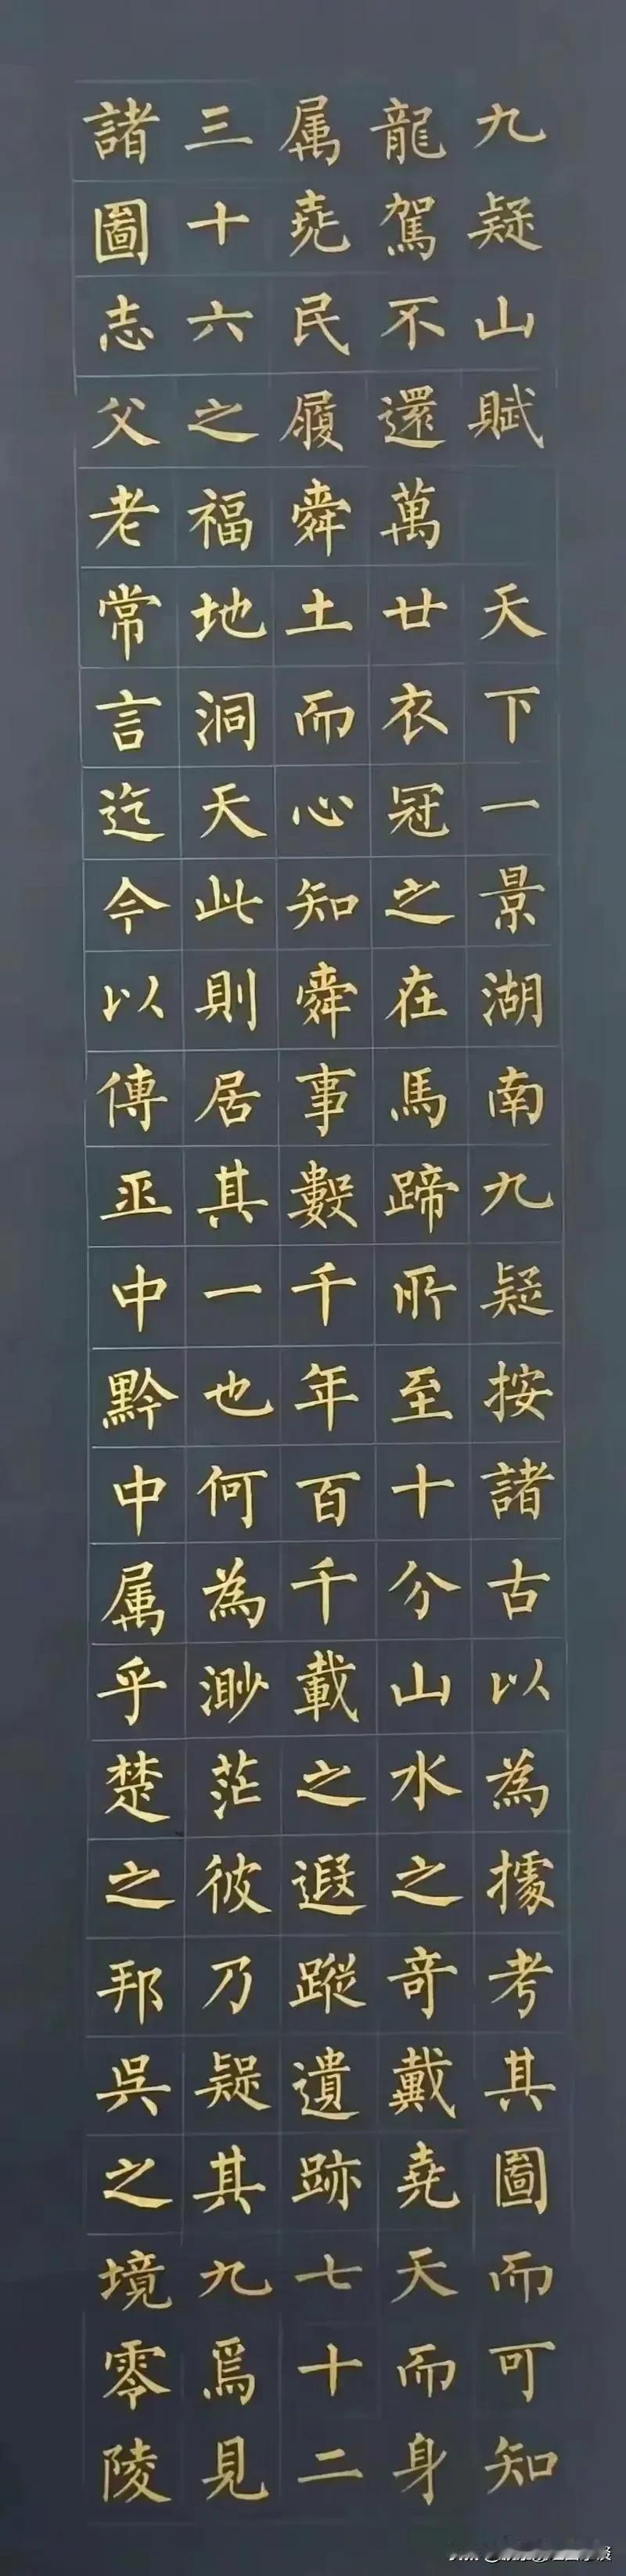 九疑山賦　天下一景湖南九疑按諸古以為據考其圖而可知
龍駕不還萬廿衣冠之在馬蹄所至十分山水之奇戴堯天而身
属堯民履舜土而心知舜事數千年百千載之遐蹤遺跡七十二
三十六之福地洞天此則居其一也何為渺茫彼乃疑其九焉見
諸圖志父老常言迄今以傳巫中黔中属乎楚之邦吳之境零陵